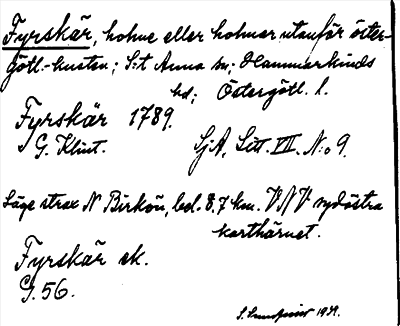 Fyrskär, holme eller holmar utanför öster-
götl.-kusten; S:t Anna sn; Hammarkinds
hd; Östergötl. l.
Fyrskär 1789.
G. Klint. SjA, Litt. VII. N:o 9.
Läge strax N Birkön, bel. 8.7 km. VNV sydöstra
karthörnet.
Fyrskär ek.
G. 56.
S. 1939.